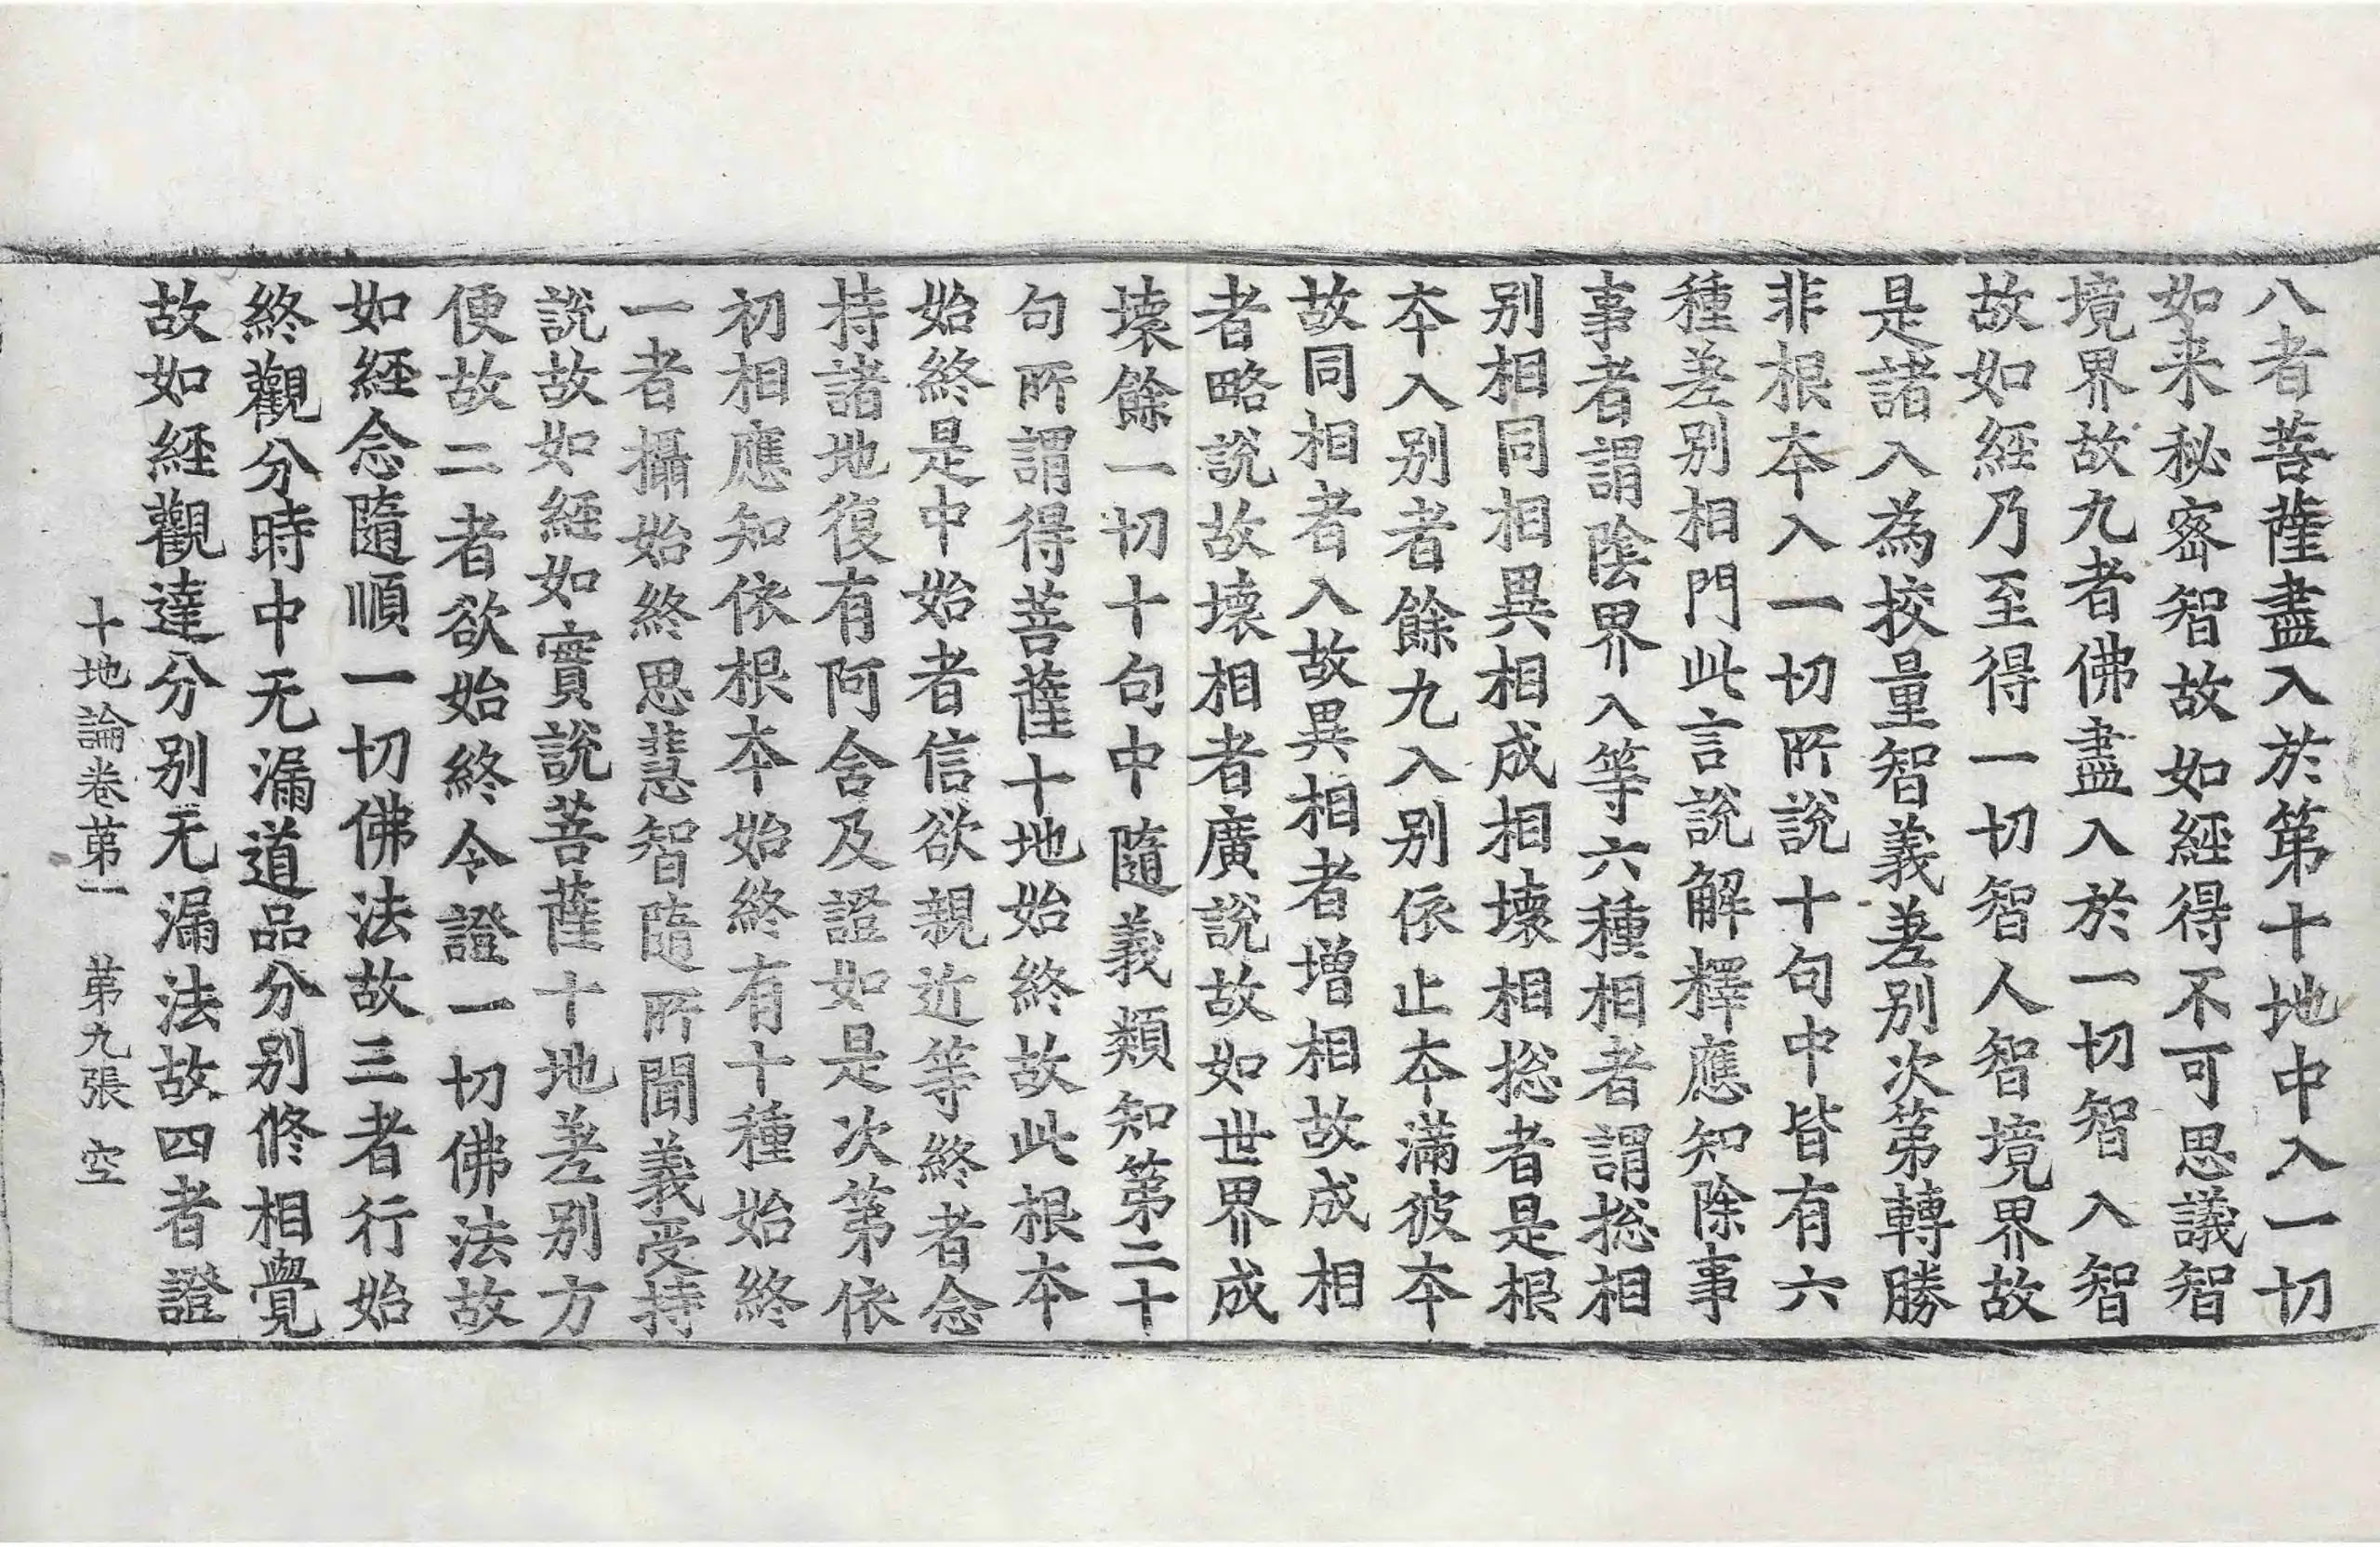 八者菩薩盡入於第十地中入一切
如来秘密智故如經得不可思議智
境界故九者佛盡入於一切智入智
故如經乃至得一切智人智境界故
是諸入為挍量智義差别次第轉勝
非根夲入一切所說十句中皆有六
種差别相門此言說解釋應知除事
事者謂陰界入等六種相者謂捴相
别相同相異相成相壞相捴者是根
夲入别者餘九入别依止夲滿彼夲
故同相者入故異相者增相故成相
者略說故壞相者廣說故如世界成
壞餘一切十句中隨義類知第二十
句所謂得菩薩十地始終故此根夲
始終是中始者信欲親近等終者念
持諸地復有阿含及證如是次第依
初相應知依根夲始終有十種始終
一者攝始終思慧智隨所聞義受持
說故如經如實說菩薩十地差别方
便故二者欲始終令證一切佛法故
如經念隨順一切佛法故三者行始
終觀分時中无漏道品分别修相覺
故如經觀達分别无漏法故四者證
十地論卷第一 第九張 空